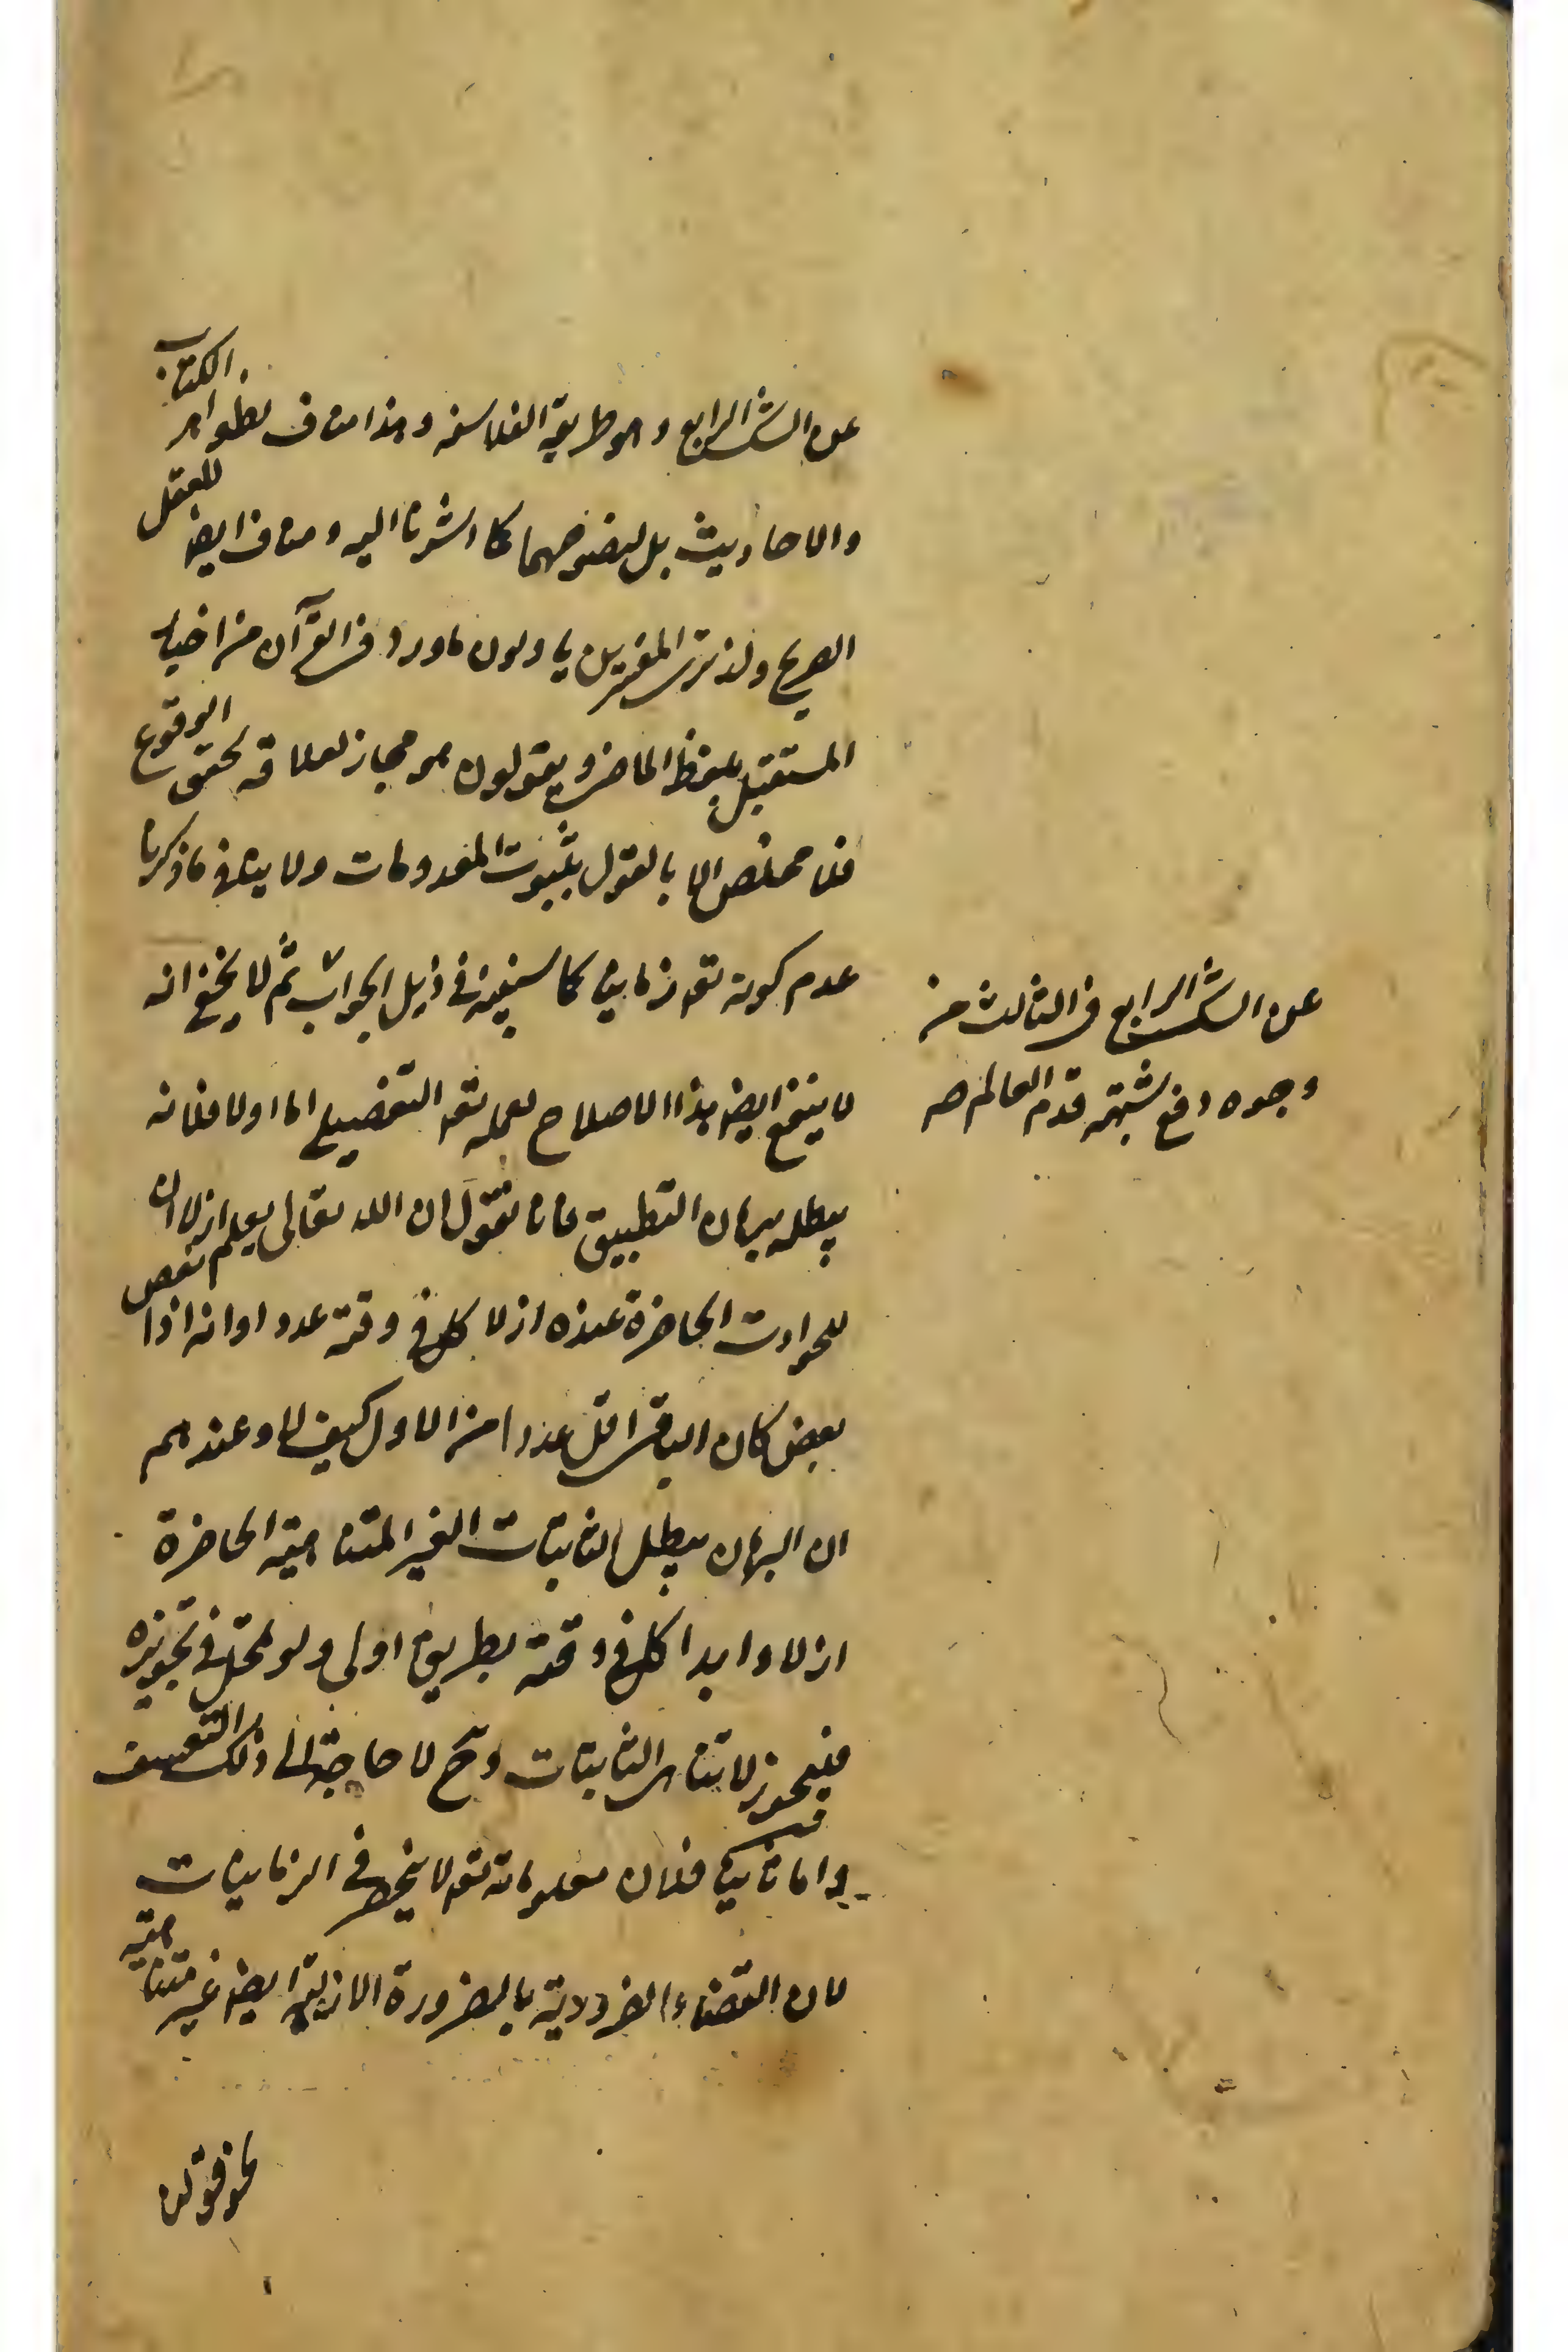 عن الشك الرابع وهو طريقة الفلاسفة وهذا مناف لظواهر الكتاب
والاحاديث بل لنصوصهما كما اشرنا اليه ومناف ايضا للعقل
الصريح ولذ ترى المفسرين ياولون ما ورد في القرآن من اخبار
المستقبل بلفظ الماضي ويقولون هو مجاز لعلاقة تحقق الوقوع
فلا مخلص الا بالقول بثبوت المعدومات ولا ينافي ما ذكرنا
عدم كونه تعه زمانيا كما سنبينه في ذيل الجواب ثم لا يخفى انه
لا ينفع ايضا هذا الاصلاح لعلمه تعه التفصيلي اما اولا فلانه
يبطله برهان التطبيق فانا نقول ان الله تعالى يعلم ازلا ان
للحوادث الحاضرة عنده ازلا كل في وقته عددا وانه اذا نقص
بعض كان الباقي اقل عددا من الاول كيف لا وعندهم
ان البرهان يبطل الثابتات الغير المتناهية الحاضرة
ازلا وابدا كل في وقته بطريق اولى ولو تمحل في تجويزه
فيجوز لا تناهي الثابتات وح لا حاجة الى ذلك التعسف
واما ثانيا فلان معلوماته تعه لا ينحصر في الزمانيات
لان القضاء الضرورية بالضرورة الازلية ايضا غير متناهية
نحو قولنا
عن الشك الرابع في الثالث من
وجوه دفع شبهة قدم العالم صه